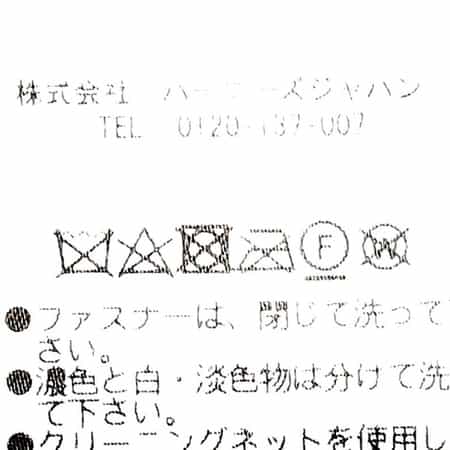 株式会社 バーニーズジャパン
TEL 0120-137-007
F
W
●ファスナーは、閉じて洗って下
さい。
●濃色と白・淡色物は分けて洗
て下さい。
●クリーニングネットを使用し